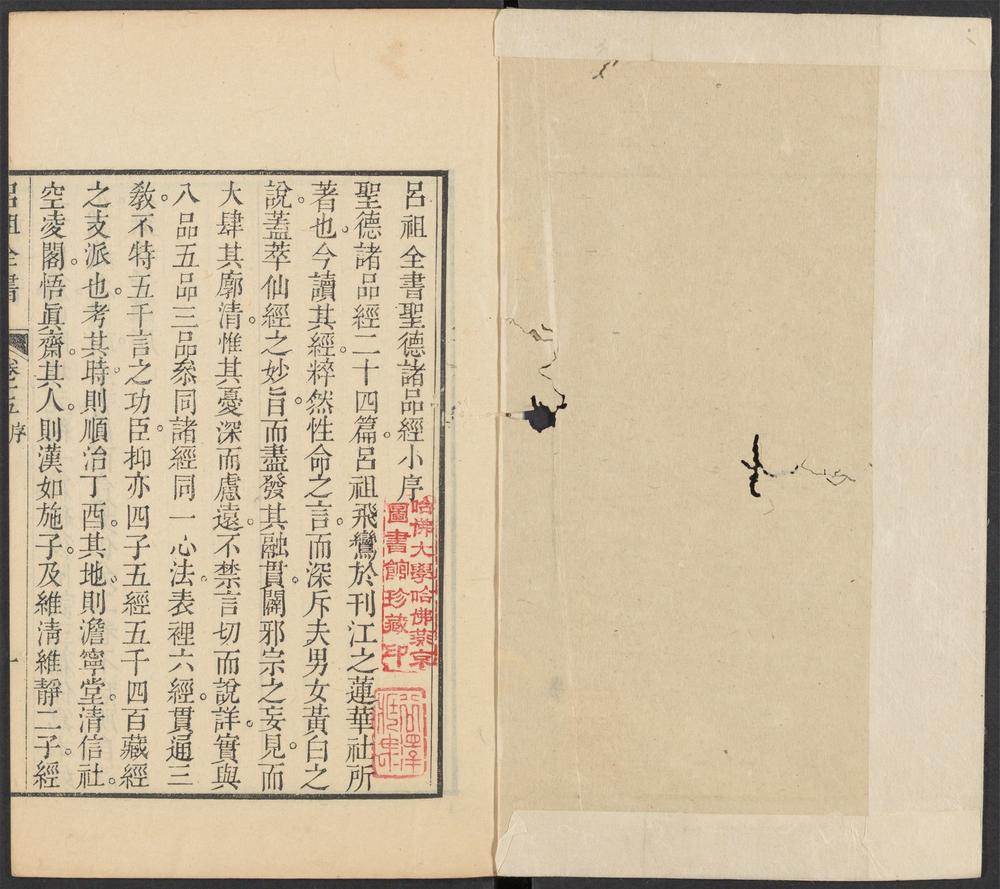 呂祖全書聖德諸品經小序
聖德諸品經二十四篇。呂祖飛鸞於刊江之蓮華社所
著也。今讀其經。粹然性命之言。而深斥夫男女黃白之
說。蓋萃仙經之妙旨。而盡發其融貫。闢邪宗之妄見。而
大肆其廓清。惟其憂深而慮遠。不禁言切而說詳。實與
八品五品三品叅同諸經。同一心法。表裡六經。貫通三
敎。不特五千言之功臣。抑亦四子五經五千四百藏經
之支派也。考其時。則順治丁酉。其地。則澹寧堂。清信社。
空凌閣。悟眞齋。其人。則漢如施子。及維淸維靜二子。經
呂祖全書
卷十五 序
一
哈佛大學哈佛燕京
圖書館珍藏印